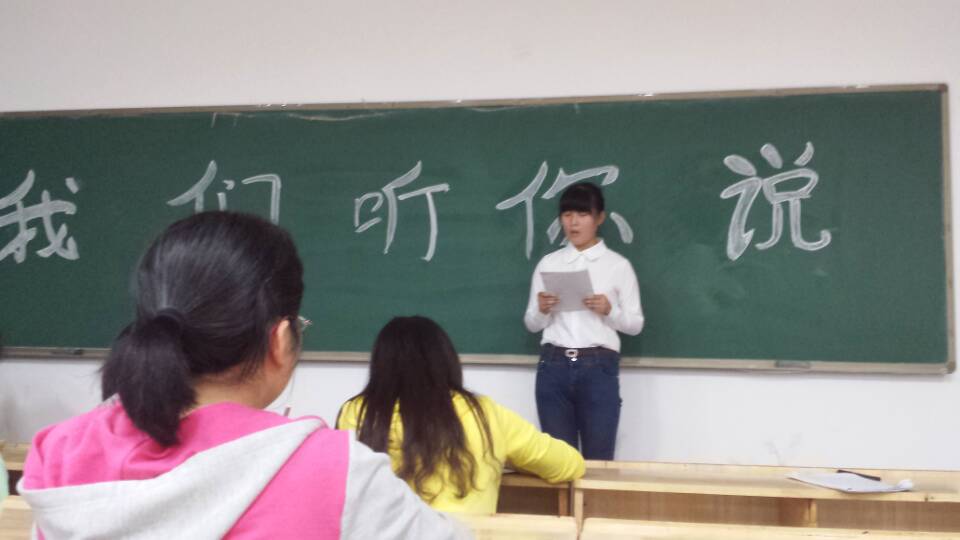 我们听你说